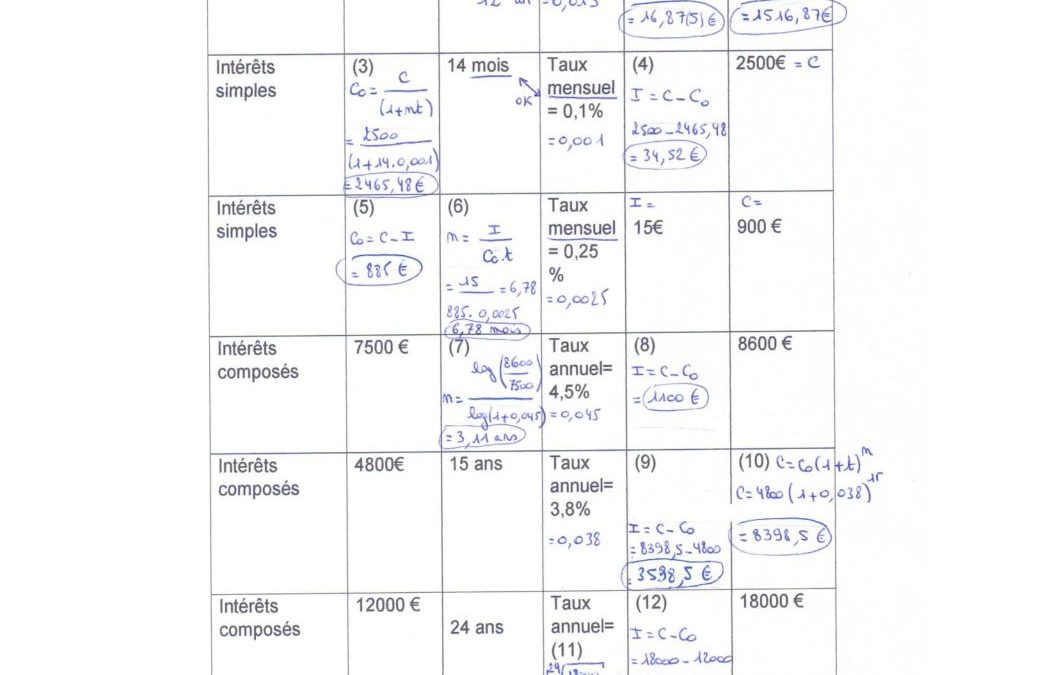 12 an = 0,015
= 16,87(5) €
= 1516,87€
Intérêts
simples
(3)
C₀ = C
(1+mt)
= 2500
(1+14.0,001)
= 2465,48€
14 mois
OK
Taux
mensuel
= 0,1%
=0,001
(4)
I = C-C₀
2500-2465,48
= 34,52 €
2500€ = C
Intérêts
simples
(5)
C₀ = C-I
= 885 €
(6)
m = I
C₀.t
= 15 = 6,78
885. 0,0025
6,78 mois
Taux
mensuel
= 0,25
%
=0,0025
I =
15€
C=
900 €
Intérêts
composés
7500 €
(7)
log(8600
7500)
m=
log(1+0,045)
= 3,11 ans
Taux
annuel=
4,5%
=0,045
(8)
I = C-C₀
= 1100 €
8600 €
Intérêts
composés
4800€
15 ans
Taux
annuel=
3,8%
=0,038
(9)
I = C-C₀
= 8398,5-4800
= 3598,5 €
(10) C=C₀(1+t)ᵐ
C=4800(1+0,038)¹⁵
= 8398,5 €
Intérêts
composés
12000 €
24 ans
Taux
annuel=
(11)
(12)
I = C-C₀
= 18000 - 12000
18000 €